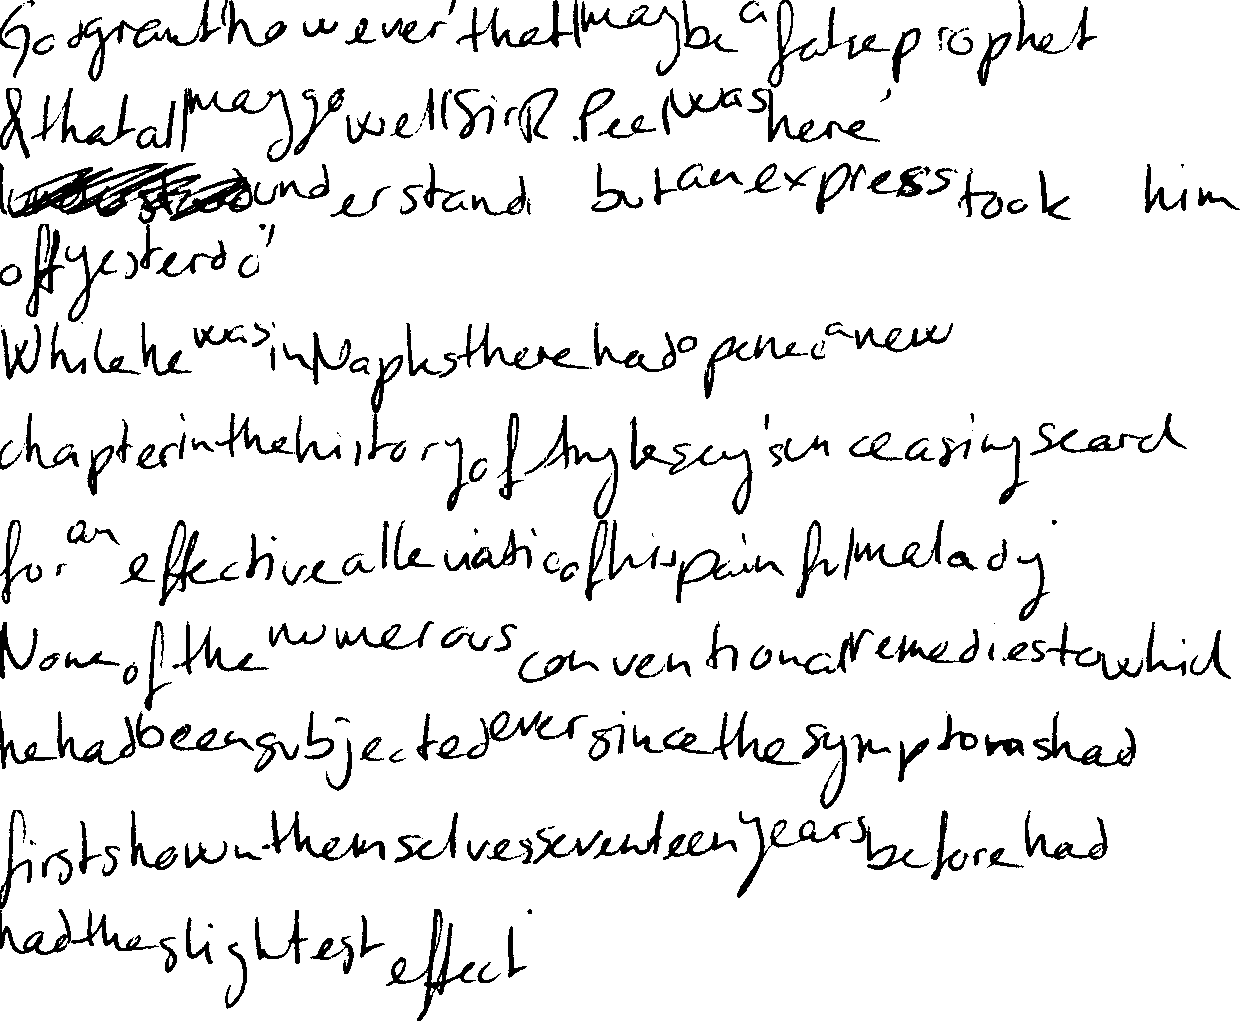 God grant however that I may be a false prophet
& that all may go well (Sir R. Peel was here
understand but an express took him
off yesterda"
While he was in Naples there had opened a new
chapter in the history of Anglesey's unceasing search
for an effective alleviatio of his painful malady.
None of the numerous conventional remedies to which
he had been subjected ever since the symptoms had
first shown themselves seventeen years before had
had the slightest effect.